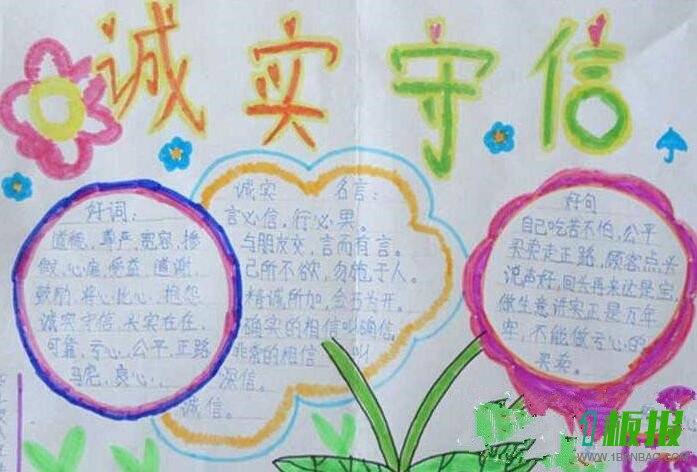 诚实守信
好词：
道德，尊严，宽容，掺
假，心虚，受益，道谢，
鼓励，将心比心，抱怨
诚实守信，长实在在，
可靠，亏心，公平，正路
马宪，良心，
诚实 名言：
言必信，行必果。
与朋友交，言而有言。
己所不欲，勿施于人。
精诚所加，金石为开。
确实的相信叫确信，
非常的相信 叫
深信。
诚信。
好句
自己吃苦不怕，公平
买卖走正路，顾客点头
说声好，回长再来这是宝，
做生意讲实正是万年
牢，不能做亏心的
买卖。
板报
WWW.1BANBAO.COM